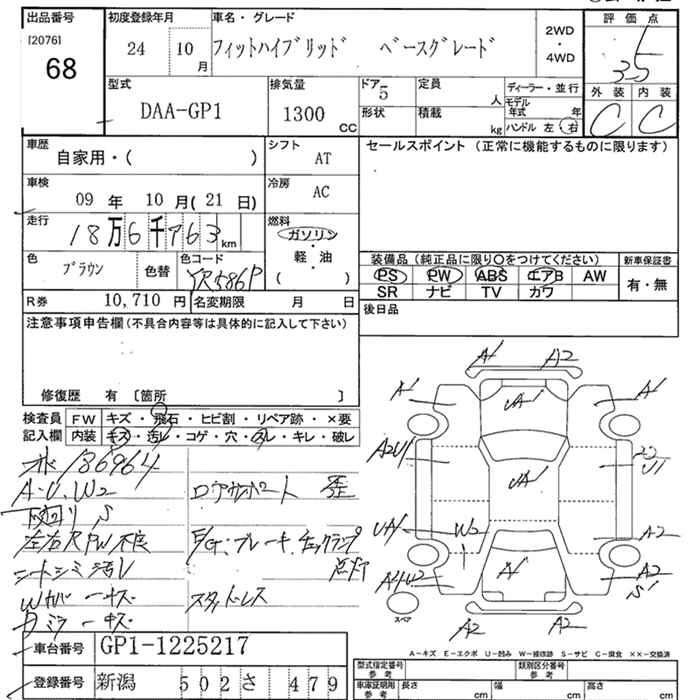 出品番号 初度登録年月 車名・グレード 評価点
[2076]
68
24 10月 フィットハイブリッド ベースグレード
2WD・4WD
3.5
型式 排気量 ドア 定員 ディーラー・並行 外装 内装
DAA-GP1 1300 CC 5 人 モデル年式 年 C C
形状 積載 kg ハンドル 左 右
車歴 シフト セールスポイント (正常に機能するものに限ります)
自家用・( ) AT
車検 冷房
09年 10月(21日) AC
走行 燃料
18万6千763km ガソリン・軽油
色 色コード ( )
ブラウン 色替 YR586P
装備品(純正品に限り〇をつけてください) 新車保証書
PS PW ABS エアB AW 有・無
SR ナビ TV カワ
R券 10,710円 名変期限 月 日
後日品
注意事項申告欄(不具合内容等は具体的に記入して下さい)
修復歴 有 〔箇所 〕
検査員 FW キズ・飛石・ヒビ割・リペア跡・×要
記入欄 内装 キズ・汚レ・コゲ・穴・スレ・キレ・破レ
186964
A・U、W2
下廻り S
左右RPW不良
シートシミ汚レ
キズ
ミラーキズ
歪
ブレーキ、チェックランプ
点灯
スタッドレス
A1 A2
A1 A1 A1
A2U1 A1 U1
UA1 W2 A2
A1 A2
S1
スペア A2 A2
A-キズ E-エクボ U-凹み W-補修跡 S-サビ C-腐食 ××-交換済
車台番号 GP1-1225217
登録番号 新潟 502 さ 479
型式指定番号 参考 類別区分番号 参考
車庫証明用 参考 長さ cm 幅 cm 高さ cm